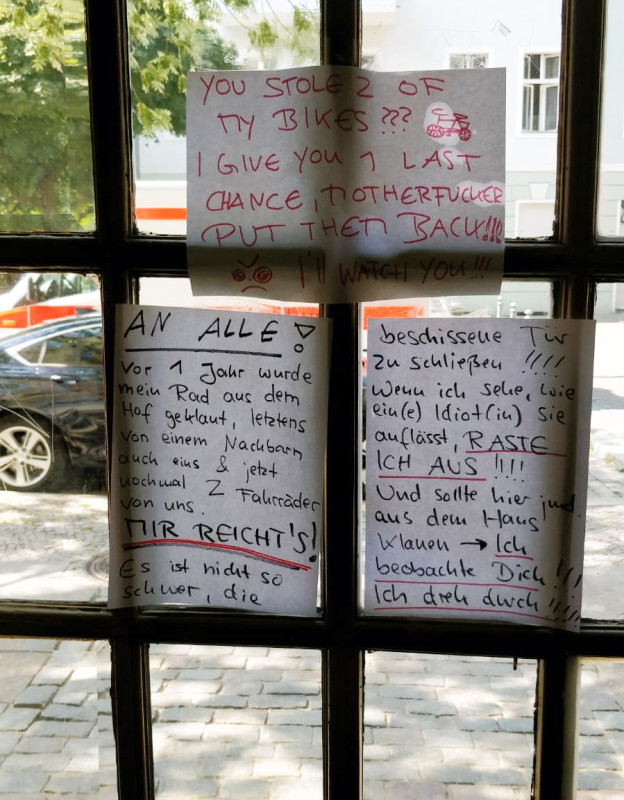 YOU STOLE 2 OF
MY BIKES ???
I GIVE YOU 1 LAST
CHANCE, MOTHERFUCKER
PUT THEM BACK!!!!
I'll WATCH YOU!!!
AN ALLE!
Vor 1 Jahr wurde
mein Rad aus dem
Hof geklaut, letztens
von einem Nachbarn
auch eins & jetzt
nochmal 2 Fahrräder
von uns.
MIR REICHT'S!
Es ist nicht so
schwer, die
beschissene Tür
zu schließen !!!!
Wenn ich sehe, wie
ein(e) Idiot(in) sie
auflässt, RASTE
ICH AUS !!!!
Und sollte hier jmd.
aus dem Haus
klauen → Ich
beobachte Dich!!!
Ich dreh durch!!!!